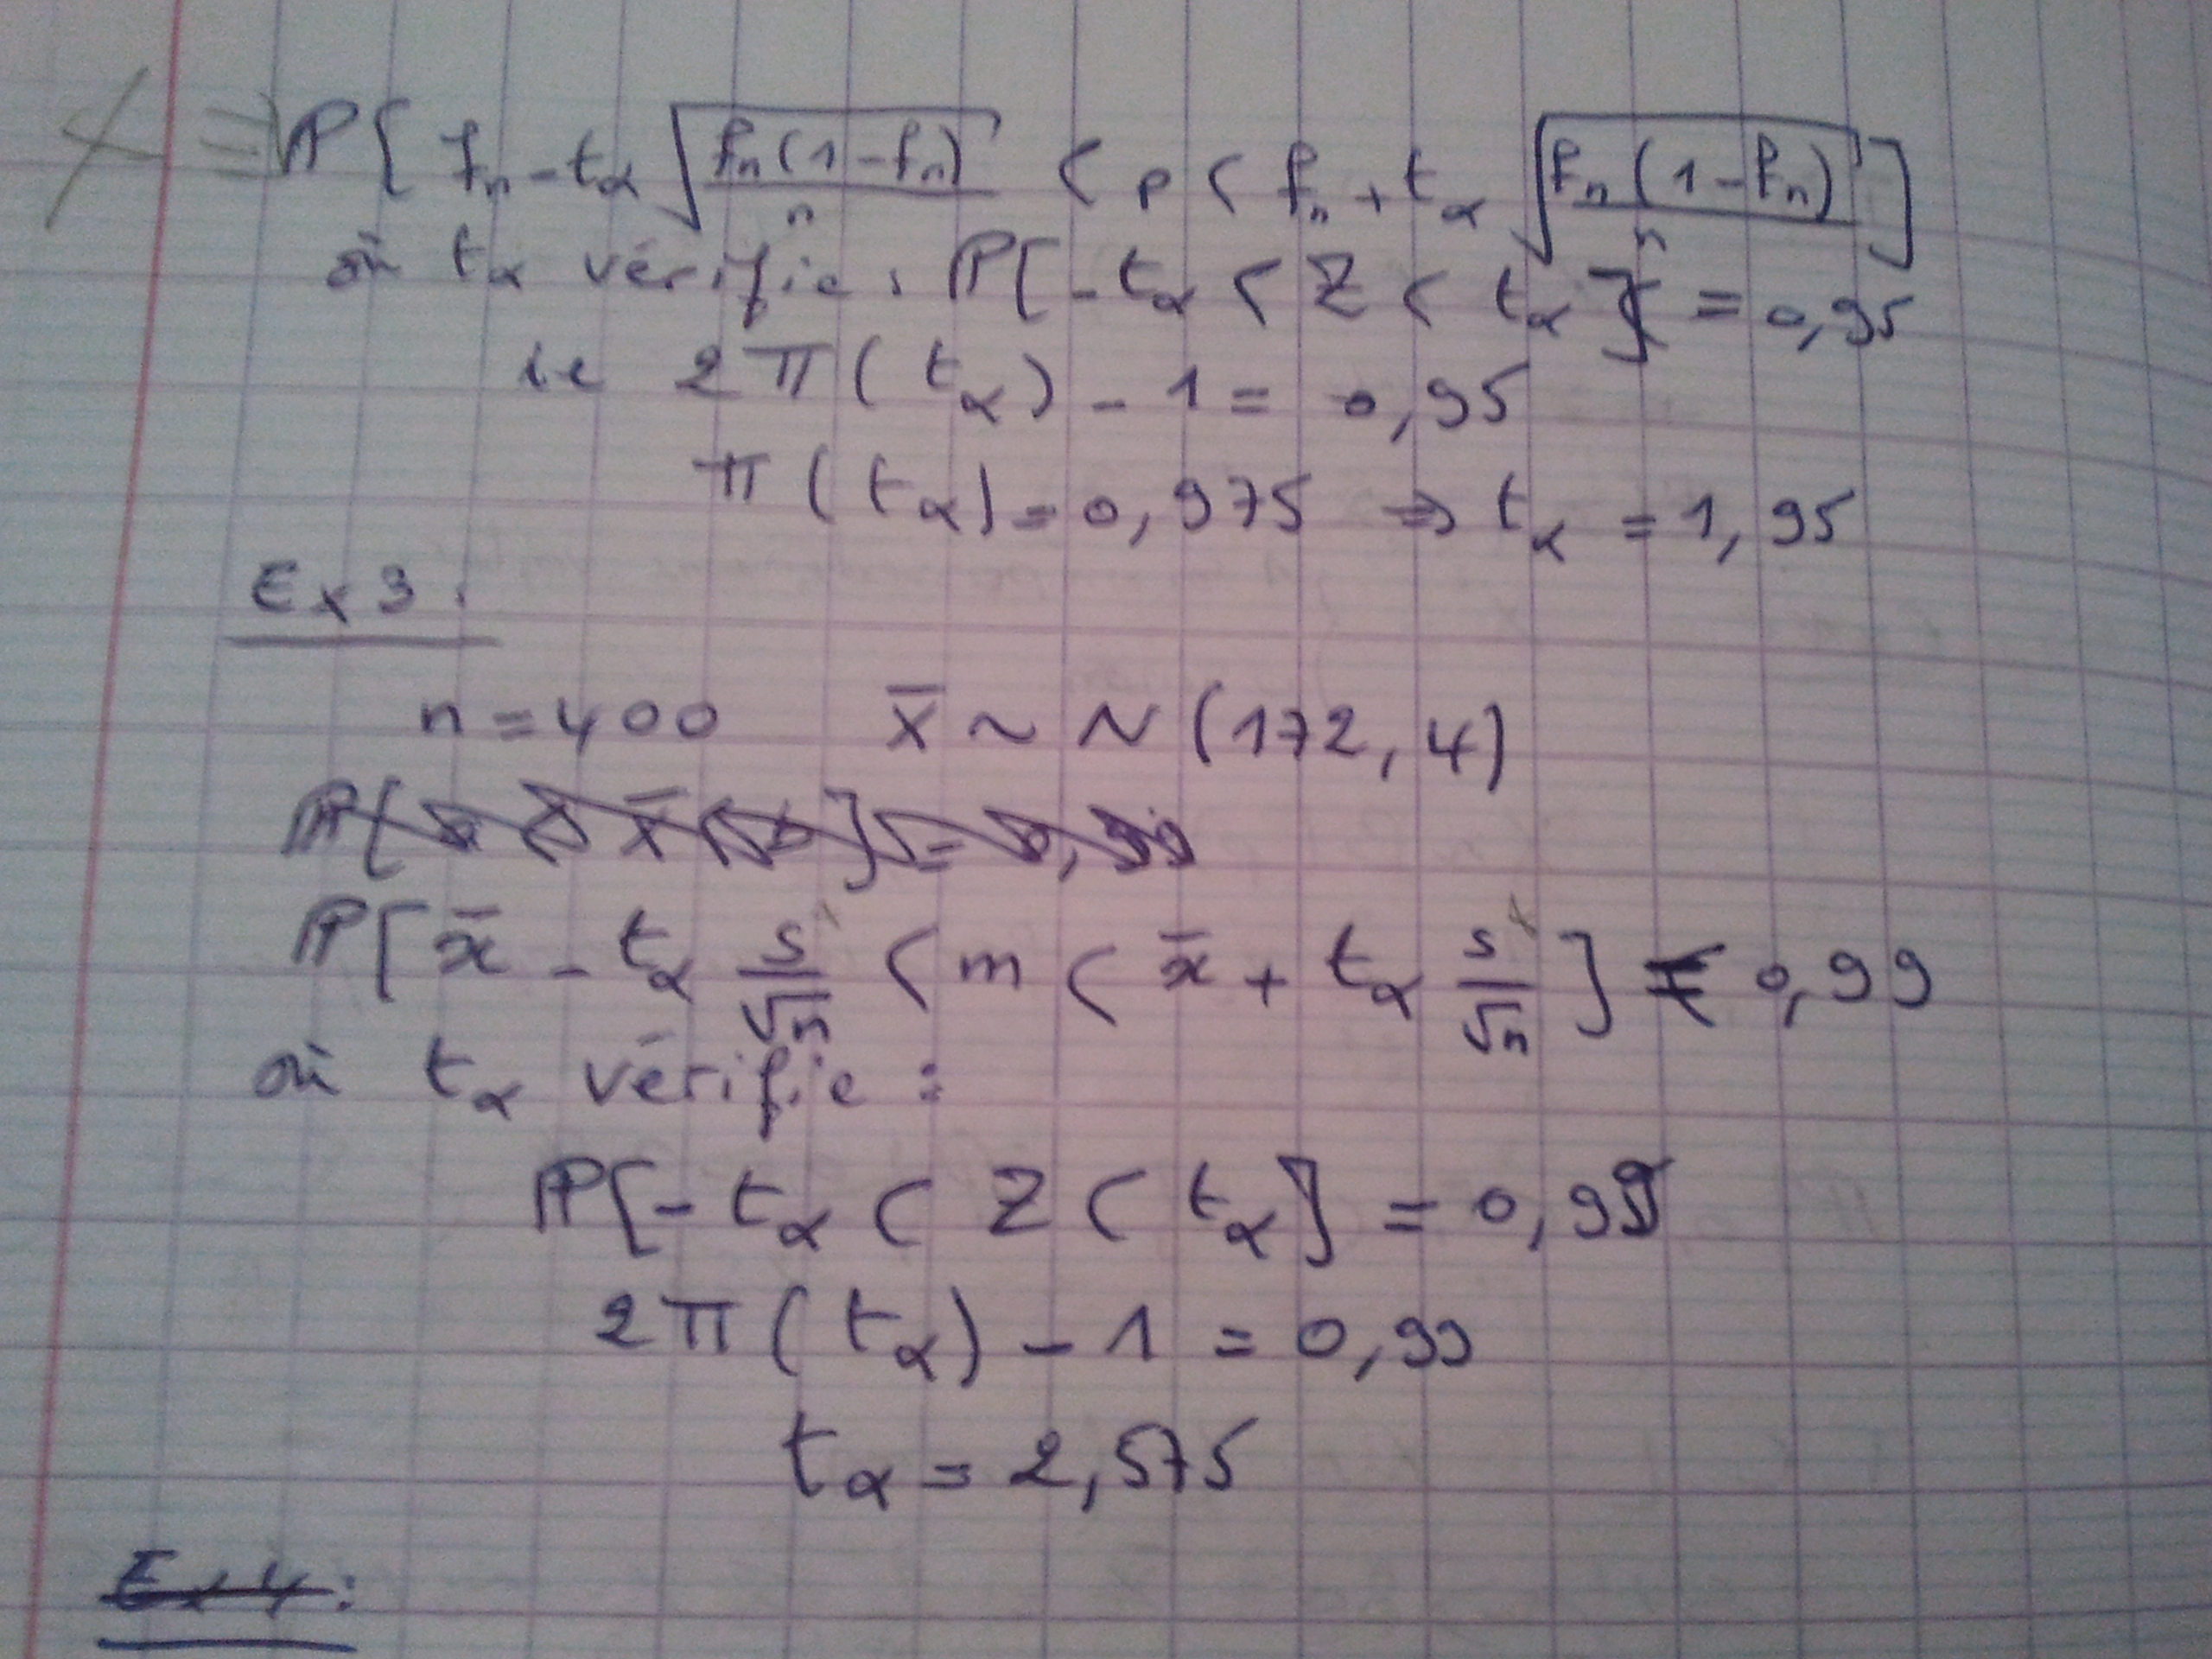 ≡ ℙ[ fₙ - t_α √(fₙ(1-fₙ)/n) < p < fₙ + t_α √(fₙ(1-fₙ)/n) ]
où t_α vérifie : ℙ[-t_α < Z < t_α] = 0,95
ie 2π(t_α) - 1 = 0,95
π(t_α) = 0,975 ⇒ t_α = 1,95
Ex 3 :
n = 400 X̄ ~ N(172, 4)
ℙ[a < X̄ < b] = 0,99
ℙ[x̄ - t_α s/√n < m < x̄ + t_α s/√n] = 0,99
où t_α vérifie :
ℙ[-t_α < Z < t_α] = 0,99
2π(t_α) - 1 = 0,99
t_α = 2,575
Ex 4 :